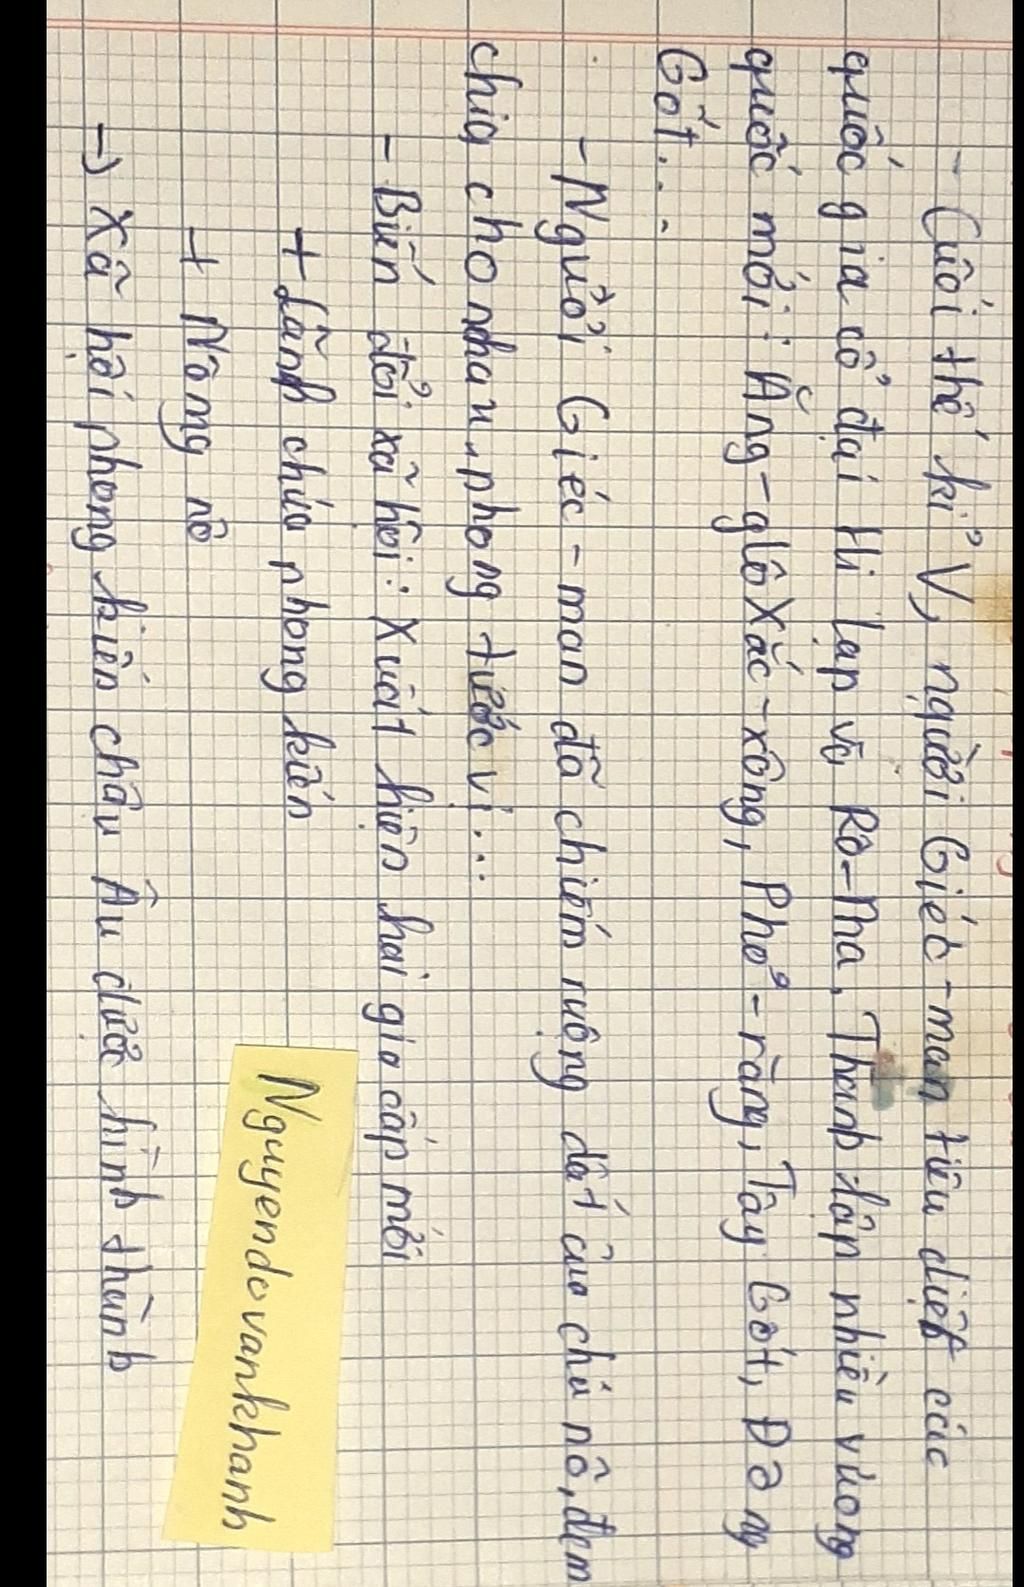 - Cuối thế kỉ V, người Giéc-man tiêu diệt các
quốc gia cổ đại Hi Lạp và Rô-Ma, Thành lập nhiều vương
quốc mới: Ăng-glô Xắc-xông, Phơ-răng, Tây Gốt, Đông
Gốt...
- Người Giéc-man đã chiếm ruộng đất của chủ nô, đem
chia cho nhau, phong tước vị...
- Biến đổi xã hội: Xuất hiện hai giai cấp mới
+ Lãnh chúa phong kiến
+ Nông nô
-> Xã hội phong kiến châu Âu được hình thành
Nguyendovankhanh